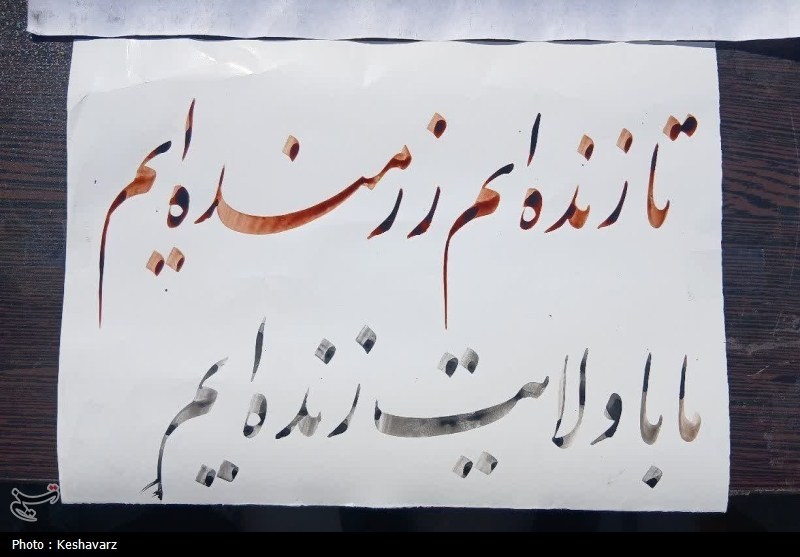 تا زنده ایم رزمنده ایم
ما با ولایت زنده ایم
تسنیم
Photo : Keshavarz